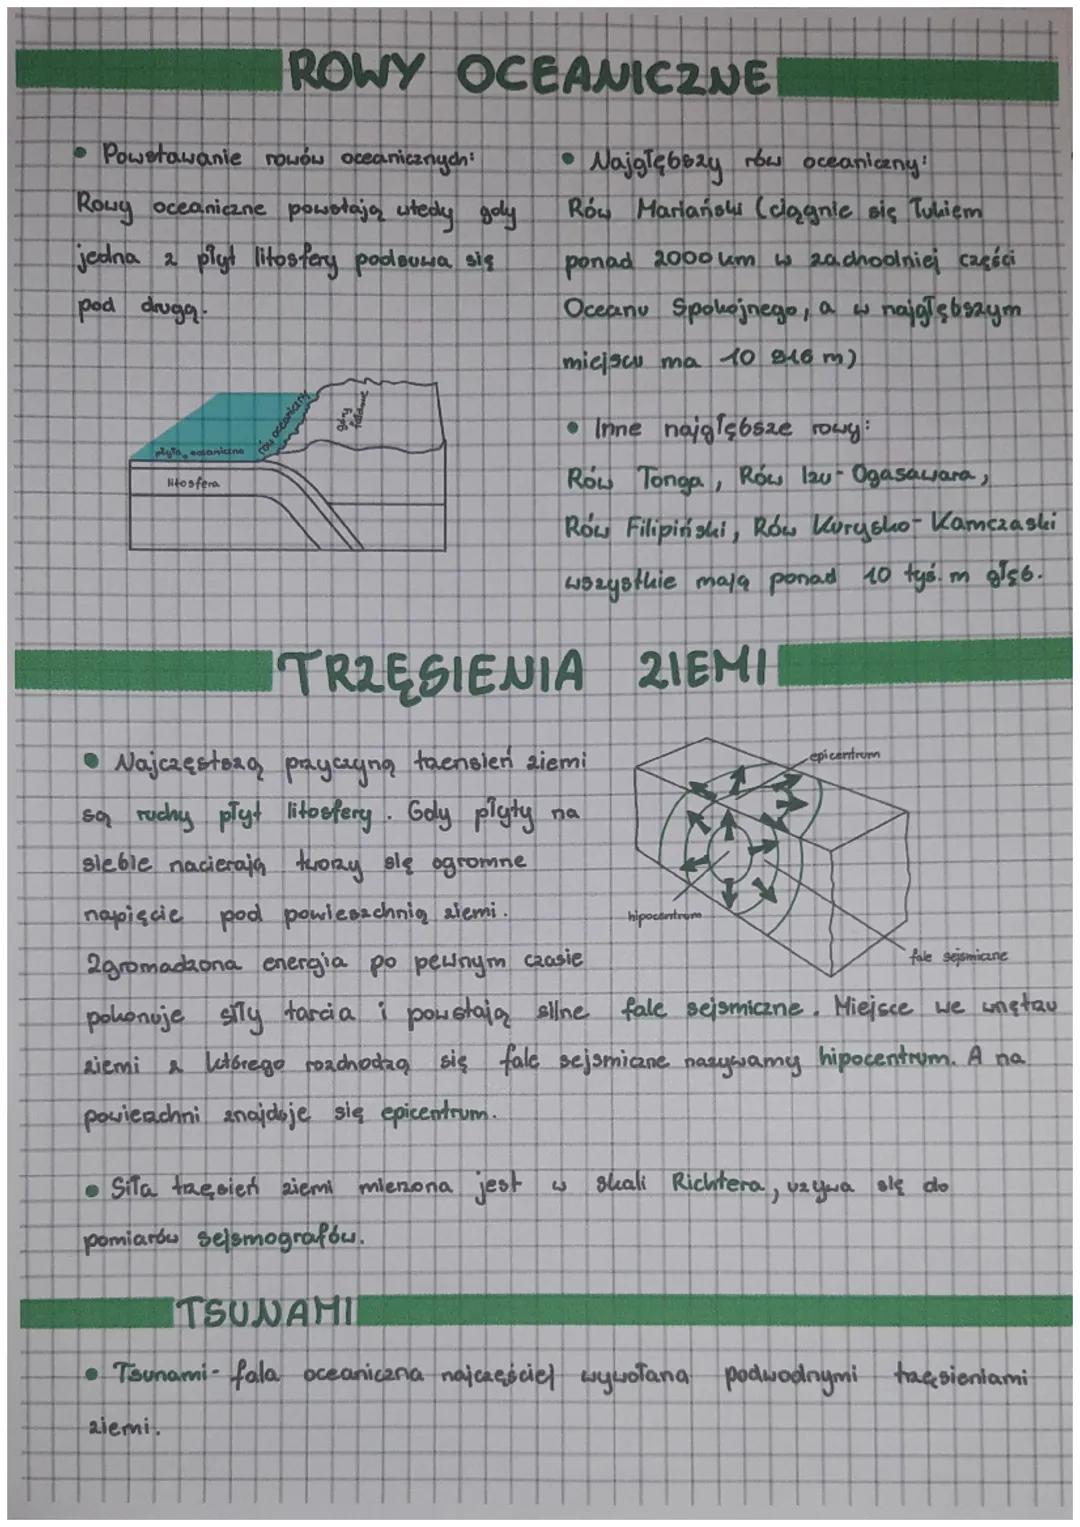 ROWY OCEANICZNE
• Powstawanie rowów oceanicznych:
Rowy oceaniczne powstają wtedy gdy
jedna z płyt litosfery podsuwa się
pod drugą.
płyta oceaniczna
rów oceaniczny
góry fałdowe
litosfera
• Najgłębszy rów oceaniczny:
Rów Mariański (ciągnie się łukiem
ponad 2000 km w zachodniej części
Oceanu Spokojnego, a w najgłębszym
miejscu ma 10 916 m)
• Inne najgłębsze rowy:
Rów Tonga, Rów Izu-Ogasawara,
Rów Filipiński, Rów Kurylsko-Kamczaski
wszystkie mają ponad 10 tyś. m głęb.
TRZĘSIENIA ZIEMI
• Najczęstszą przyczyną trzensień ziemi
są ruchy płyt litosfery. Gdy płyty na
siebie nacierają tworzy się ogromne
napięcie pod powieszchnią ziemi.
Zgromadzona energia po pewnym czasie
pokonuje siły tarcia i powstają silne fale sejsmiczne. Miejsce we wnętrzu
ziemi z którego rozchodzą się fale sejsmiczne nazywamy hipocentrum. A na
powierzchni znajduje się epicentrum.
epicentrum
hipocentrum
fale sejsmiczne
• Siła trzęsień ziemi mierzona jest w skali Richtera, używa się do
pomiarów sejsmografów.
TSUNAMI
• Tsunami - fala oceaniczna najczęściej wywołana podwodnymi trzęsieniami
ziemi.